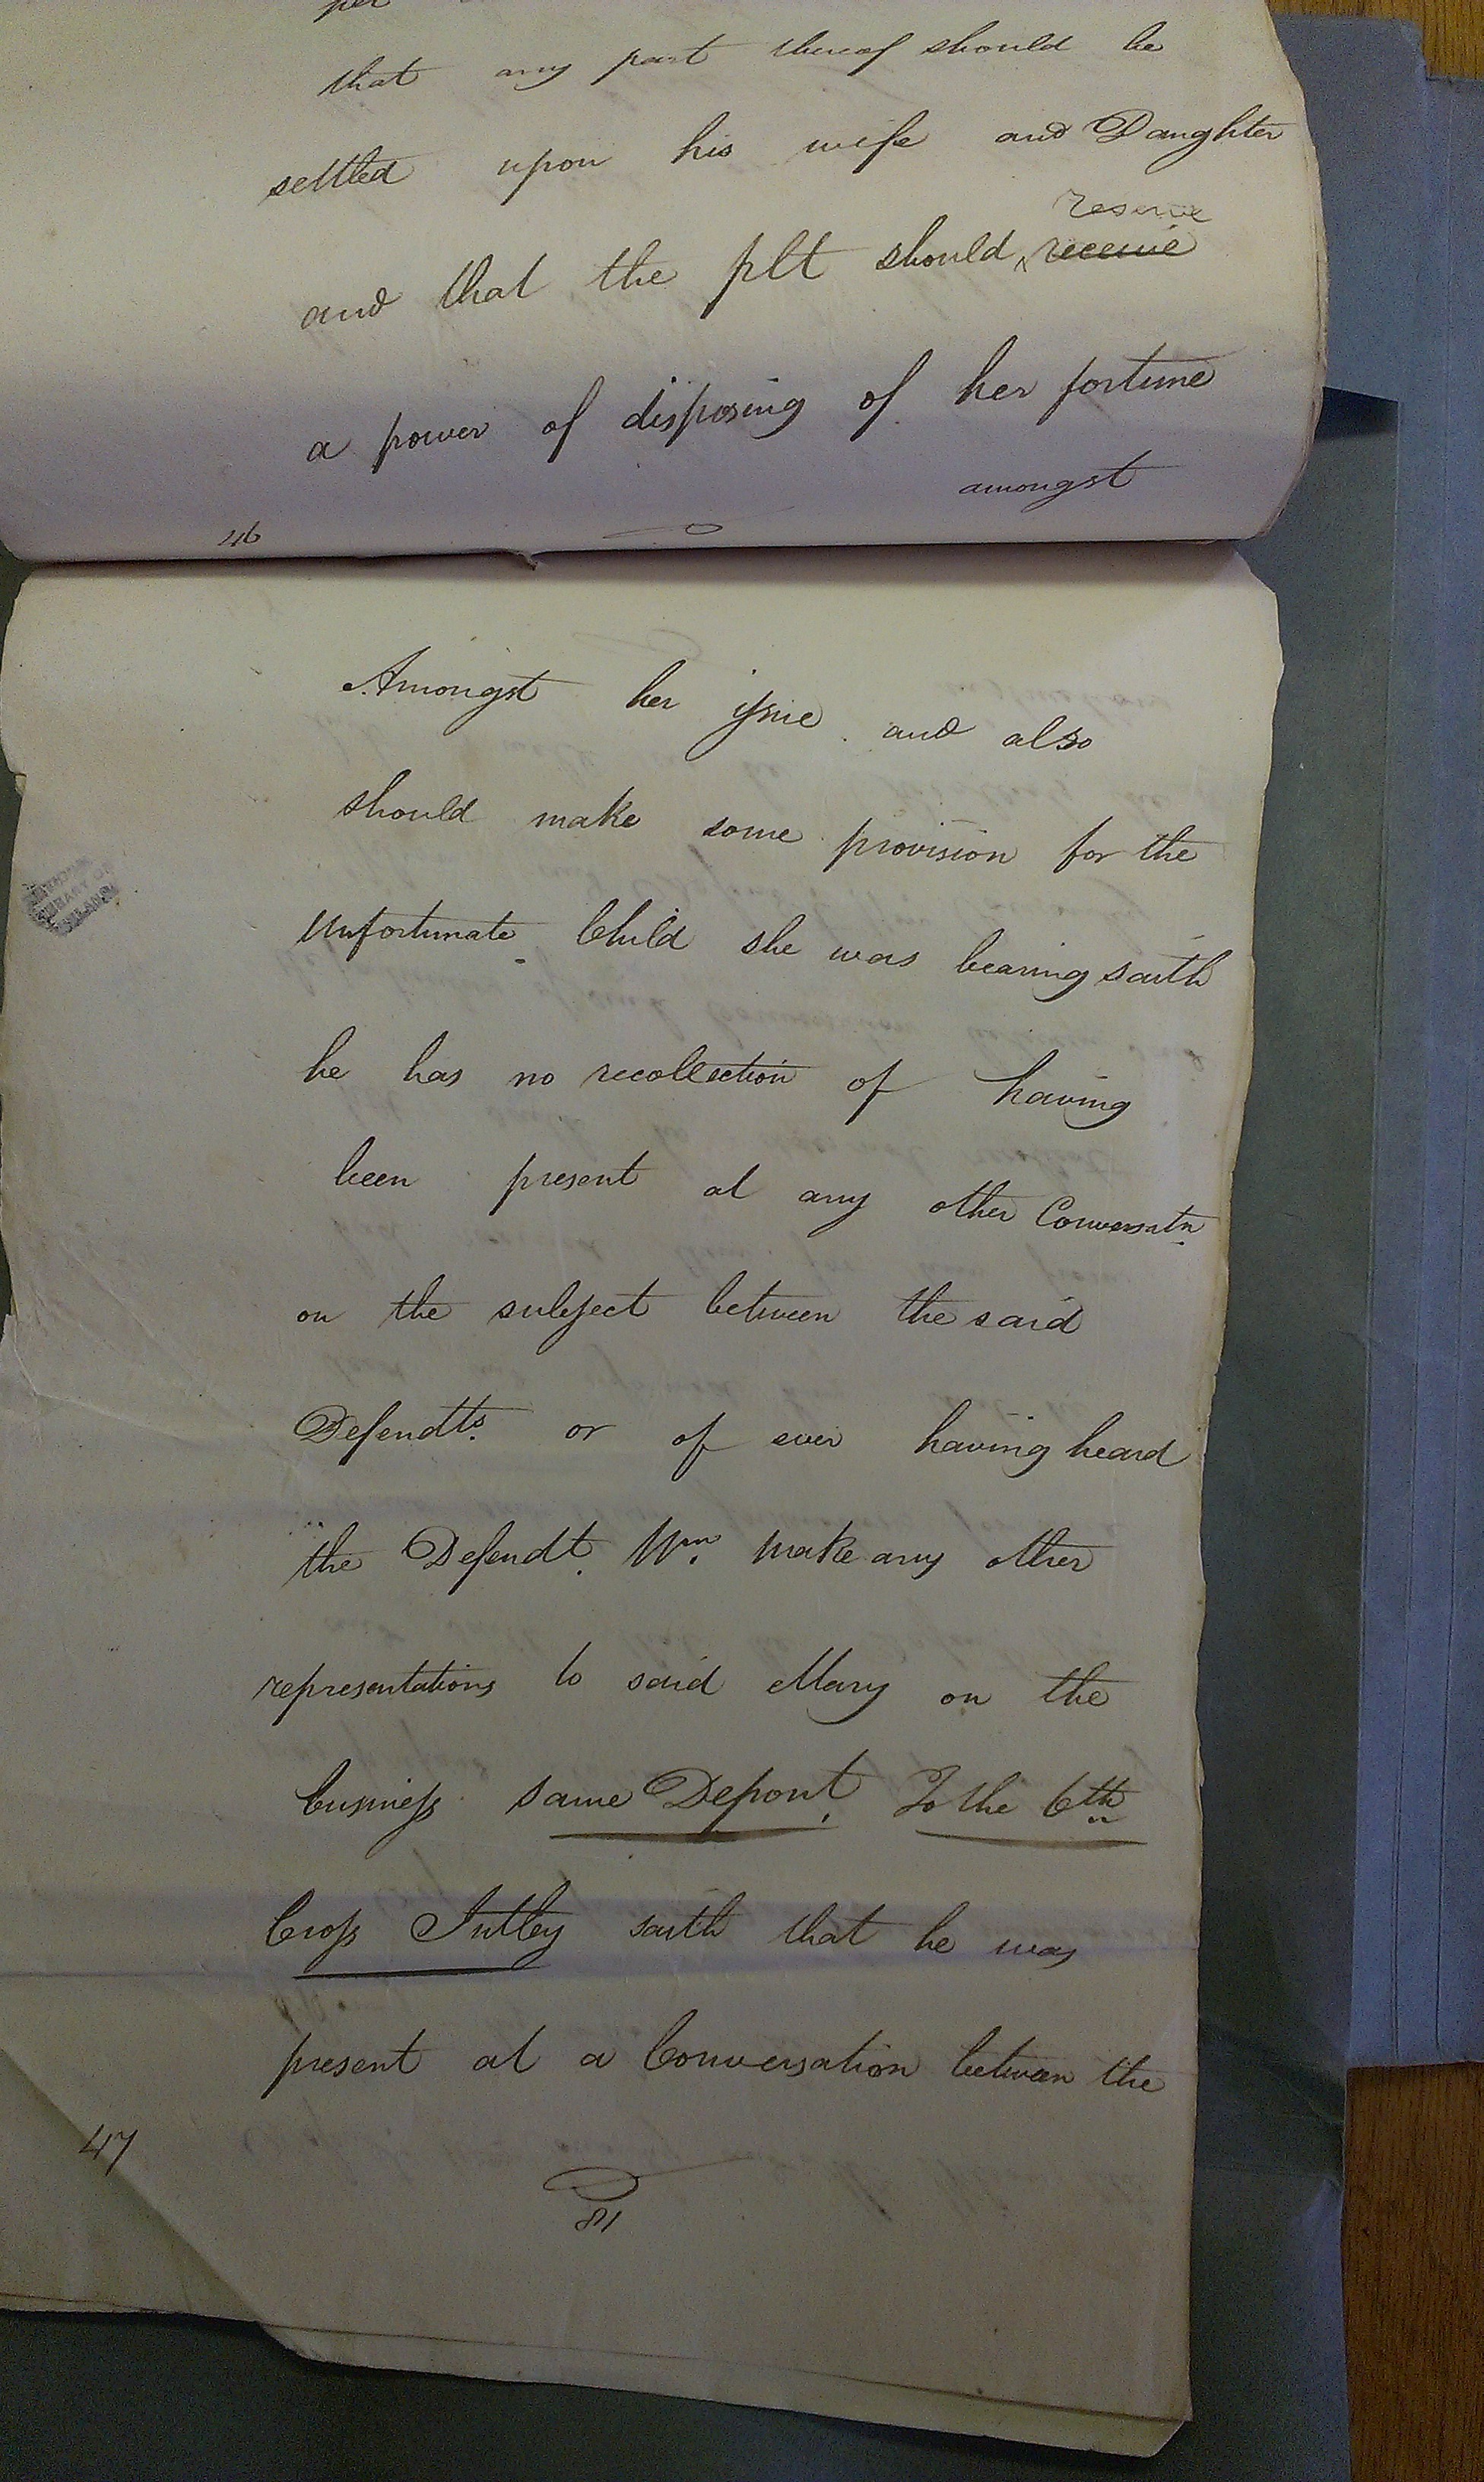 that any part thereof should be
settled upon his wife and Daughter
reserve
and that the plt should ^ receive
a power of disposing of her fortune
amongst
46
Amongst her issue and also
should make some provision for the
unfortunate Child she was bearing saith
he has no recollection of having
been present at any other Conversatn
on the subject between the said
Defendts. or of ever having heard
the Defendt. Wm. make any other
representations to said Mary on the
business same Depont. To the 6th
Cross Intby saith that he was
present at a Conversation between the
47